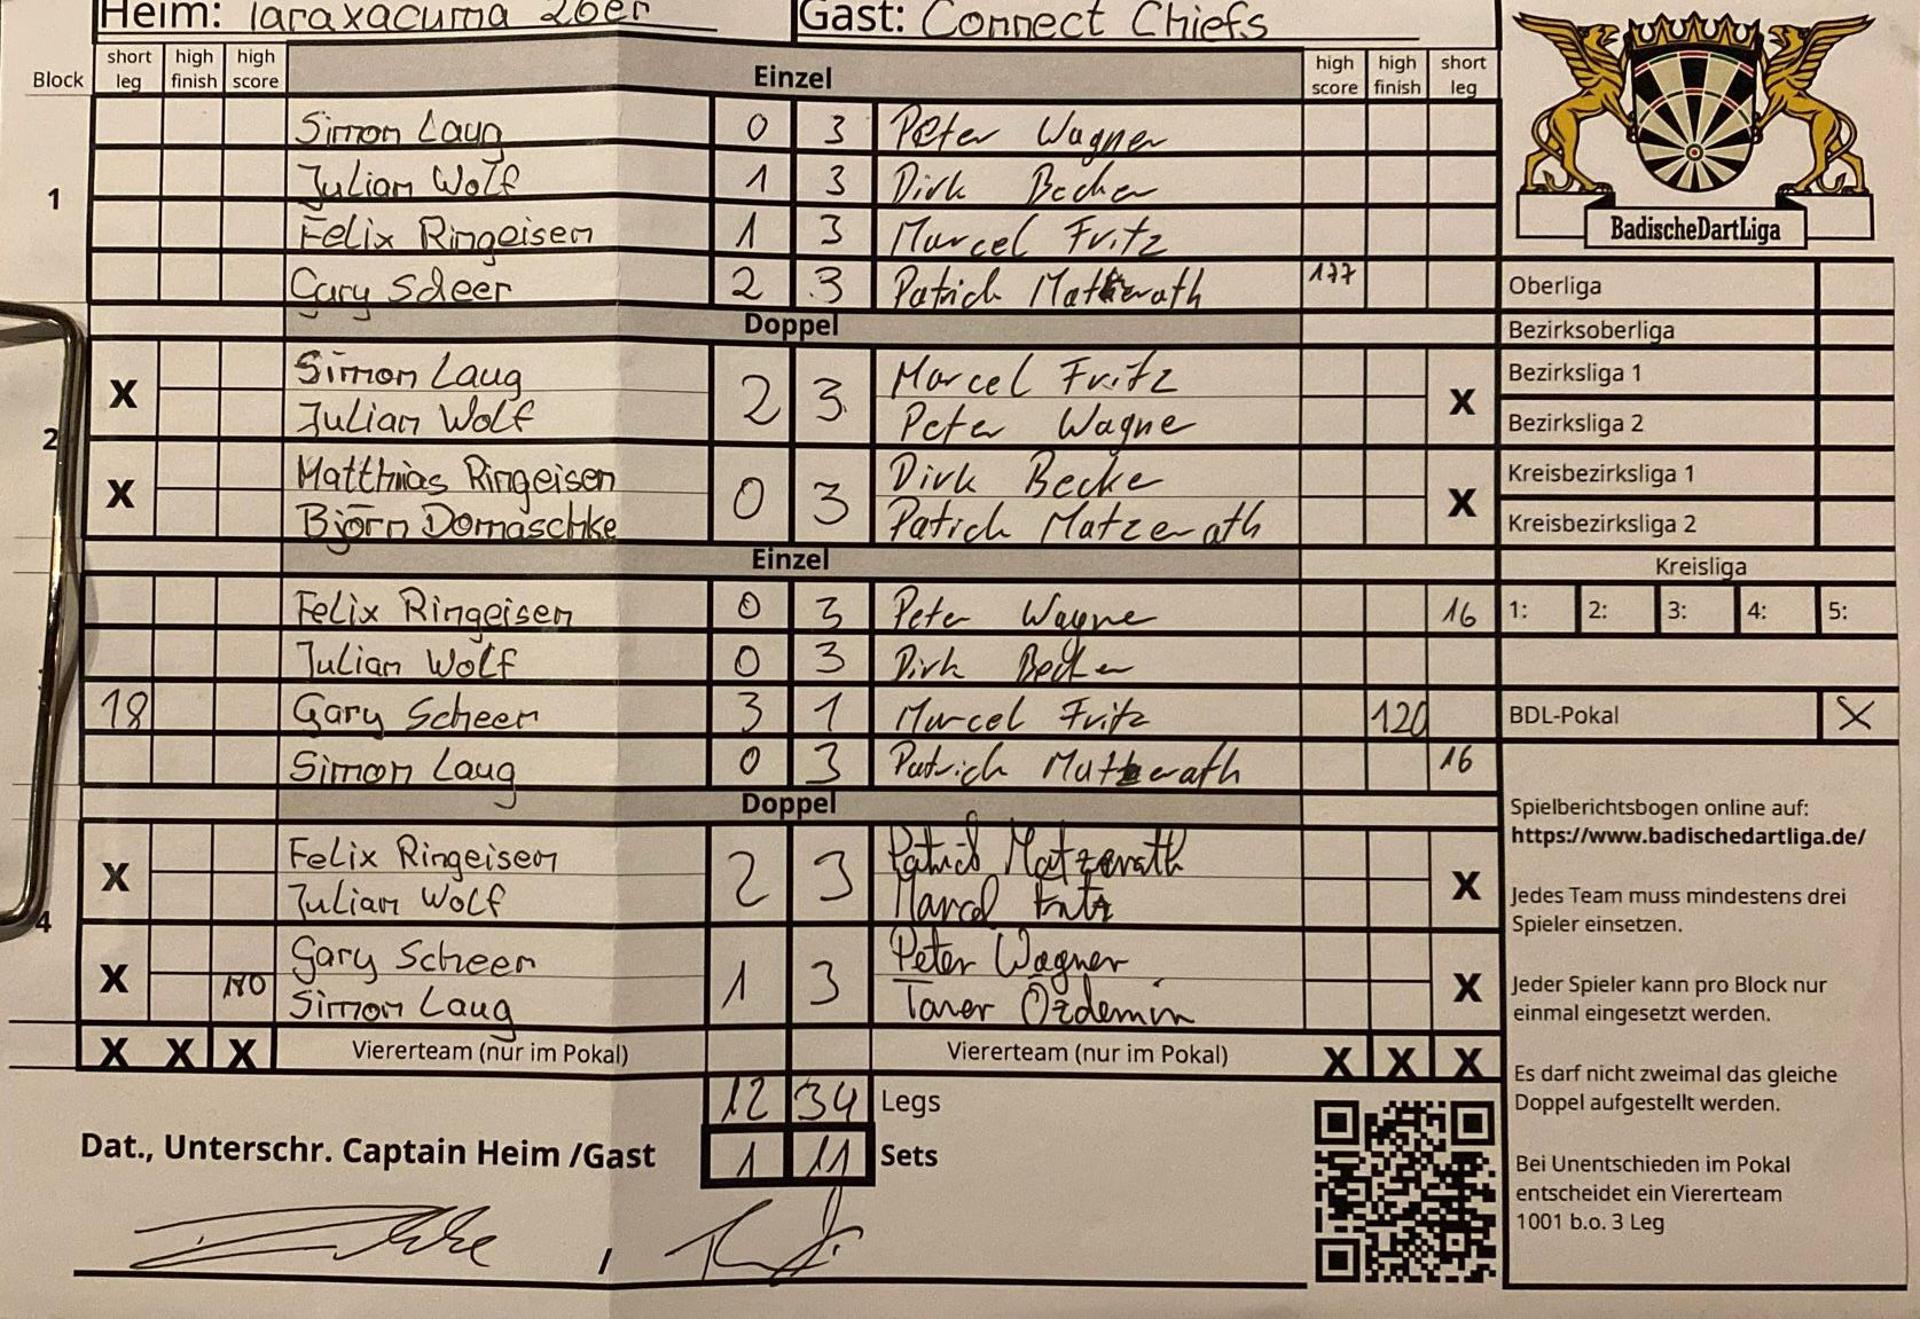 Heim: Taraxacuma 26er Gast: Connect Chiefs
Block short leg high finish high score Einzel high score high finish short leg
1
Simon Laug 0 3 Peter Wagner
Julian Wolf 1 3 Dirk Becker
Felix Ringeisen 1 3 Marcel Fritz
Gary Scheer 2 3 Patrick Matzerath 177
Doppel
2
X Simon Laug 2 3 Marcel Fritz X
Julian Wolf Peter Wagne
X Matthias Ringeisen 0 3 Dirk Becke X
Björn Domaschke Patrich Matzerath
Einzel
Felix Ringeisen 0 3 Peter Wagne 16
Julian Wolf 0 3 Dirk Becker
18 Gary Scheer 3 1 Marcel Fritz 120
Simon Laug 0 3 Patrich Matzerath 16
Doppel
4
X Felix Ringeisen 2 3 Patrick Matzerath X
Julian Wolf Marcel Fritz
X Gary Scheer 1 3 Peter Wagner X
Simon Laug Taner Özdemir
X X X Viererteam (nur im Pokal) Viererteam (nur im Pokal) X X X
12 34 Legs
1 11 Sets
Dat., Unterschr. Captain Heim /Gast
/
BadischeDartLiga
Oberliga
Bezirksoberliga
Bezirksliga 1
Bezirksliga 2
Kreisbezirksliga 1
Kreisbezirksliga 2
Kreisliga
1: 2: 3: 4: 5:
BDL-Pokal X
Spielberichtsbogen online auf:
https://www.badischedartliga.de/
Jedes Team muss mindestens drei
Spieler einsetzen.
Jeder Spieler kann pro Block nur
einmal eingesetzt werden.
Es darf nicht zweimal das gleiche
Doppel aufgestellt werden.
Bei Unentschieden im Pokal
entscheidet ein Viererteam
1001 b.o. 3 Leg